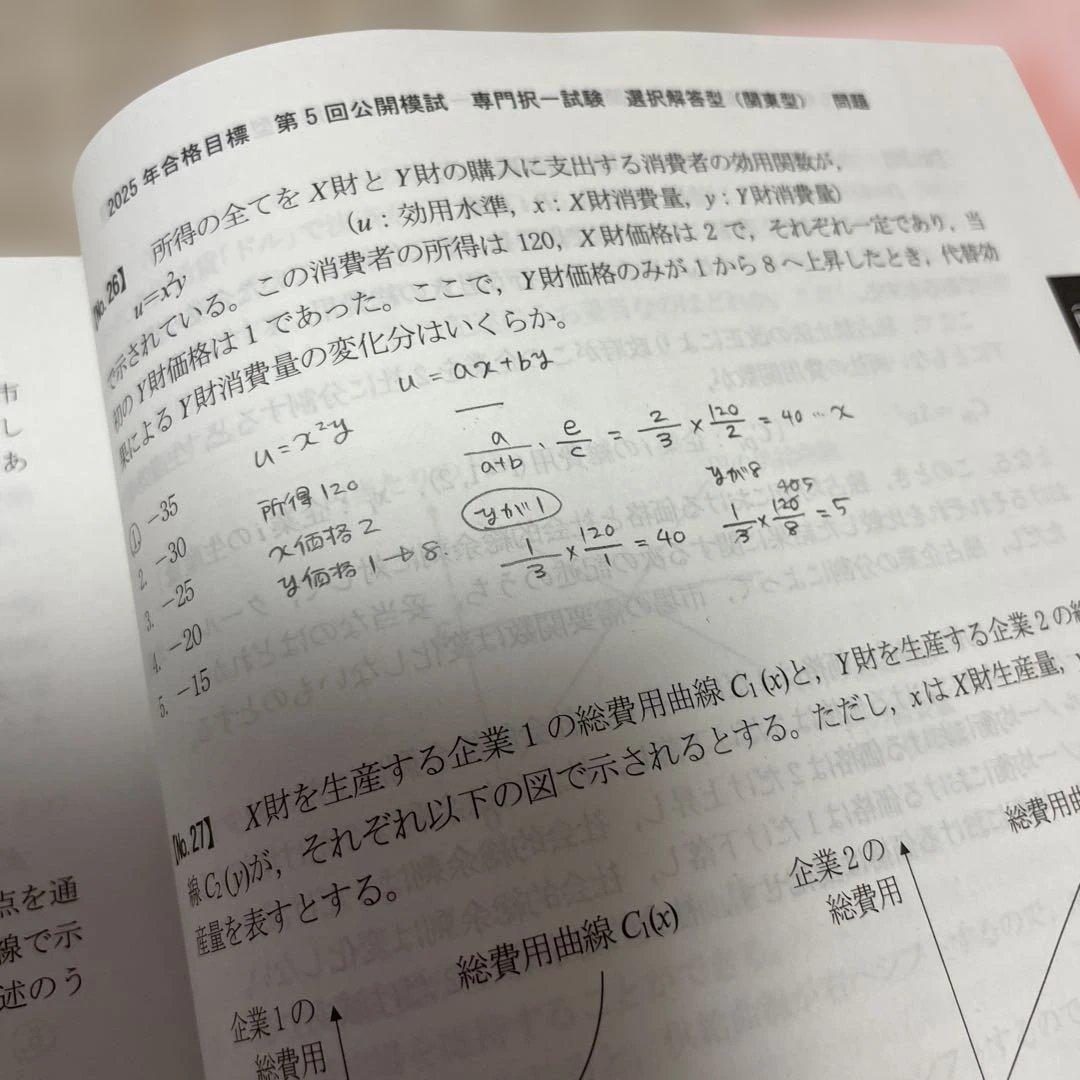 2025年合格目標 第5回公開模試 専門択一試験 選択解答型(関東型) 問題
【No. 26】 所得の全てをX財とY財の購入に支出する消費者の効用関数が,
u=x²y (u:効用水準, x:X財消費量, y:Y財消費量)
で示されている。この消費者の所得は120, X財価格は2で, それぞれ一定であり, 当
初のY財価格は1であった。ここで, Y財価格のみが1から8へ上昇したとき, 代替効
果によるY財消費量の変化分はいくらか。
u=ax+by
u=x²y
a/a+b · e/c = 2/3 × 120/2 = 40 … x
所得120
x価格2
y価格1→8.
yが1
1/3 × 120/1 = 40
yが8
40 5
1/3 × 120/8 = 5
1. −35
2. −30
3. −25
4. −20
5. −15
【No. 27】 X財を生産する企業1の総費用曲線C₁(x)と, Y財を生産する企業2の総
線C₂(y)が, それぞれ以下の図で示されるとする。ただし, xはX財生産量,
産量を表すとする。
総費用曲線C₁(x)
企業1の
総費用
企業2の
総費用
総費用曲
市
し
あ
点を通
線で示
述のう